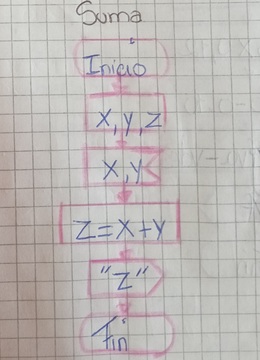 Suma
Inicio
X, Y, Z
X, Y
Z = X + Y
"Z"
Fin